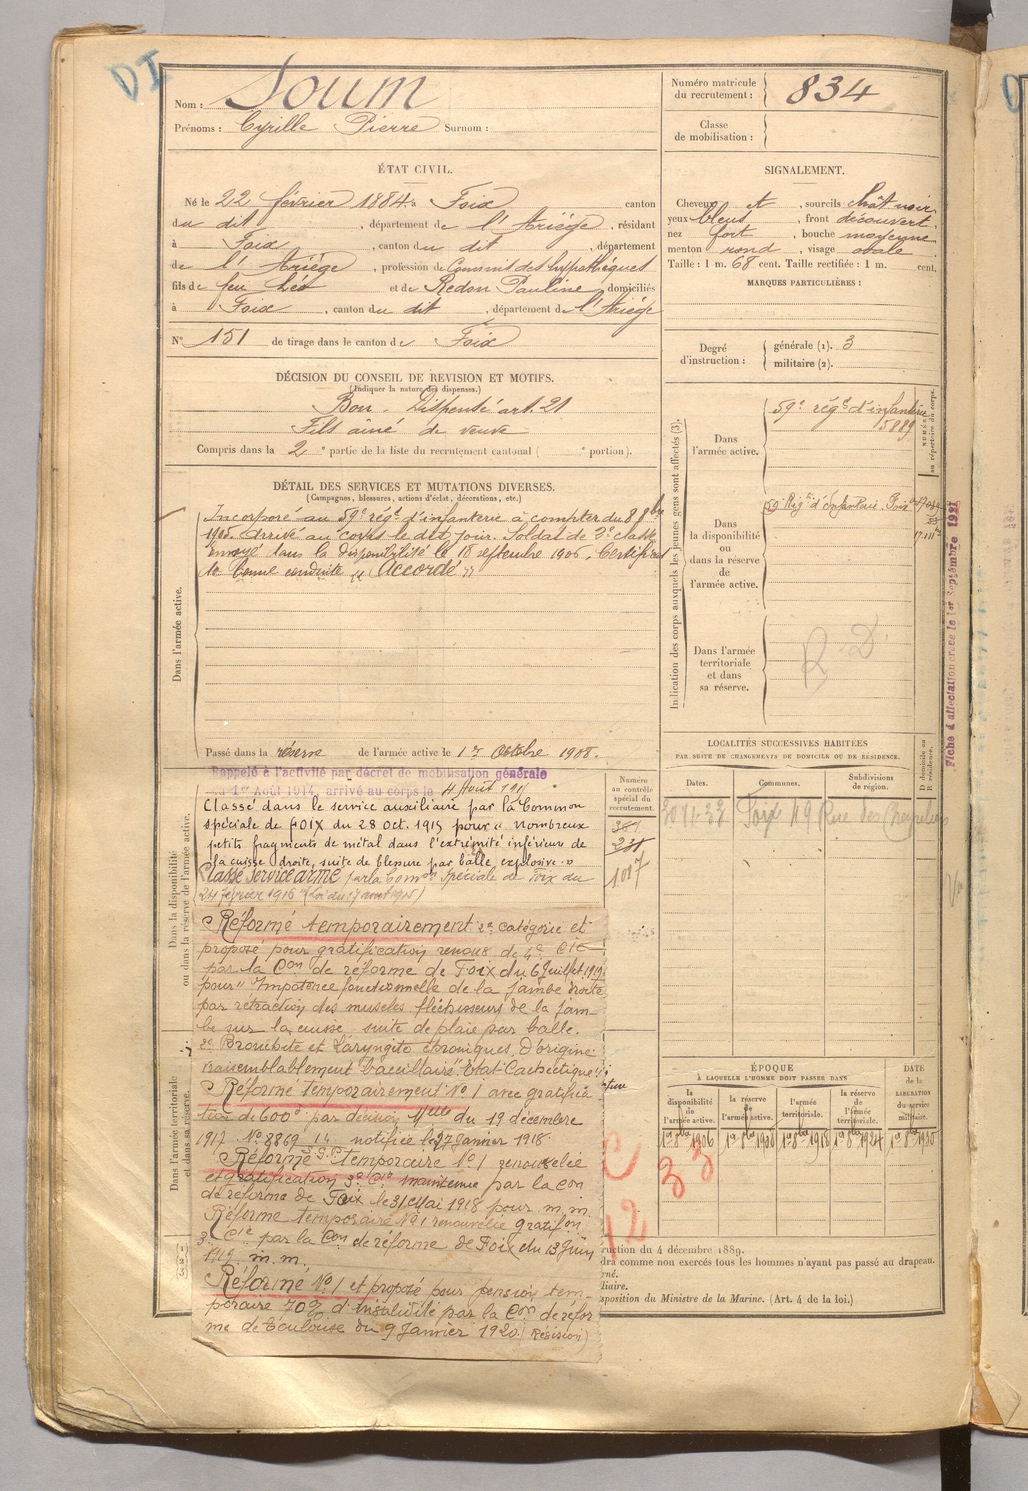 DI
Nom : Soum
Prénoms : Cyrille Pierre Surnom :
Numéro matricule du recrutement : 834
Classe de mobilisation :
ÉTAT CIVIL.
Né le 22 février 1884 à Foix canton
du dit, département de l'Ariége, résidant
à Foix, canton du dit, département
de l'Ariége, profession de Commis des hypothéques
fils de feu et de Redon Pauline domiciliés
à Foix, canton du dit, département de l'Ariége
N° 151 de tirage dans le canton de Foix
SIGNALEMENT.
Cheveux et, sourcils chât noir
yeux bleus, front découvert
nez fort, bouche moyenne
menton rond, visage ovale
Taille : 1 m. 68 cent. Taille rectifiée : 1 m. cent.
MARQUES PARTICULIÈRES :
Degré d'instruction : générale (1). 3
militaire (2).
DÉCISION DU CONSEIL DE REVISION ET MOTIFS.
(Indiquer la nature des dispenses.)
Bon. Dispensé art. 21
Fils aîné de veuve
Compris dans la 2e partie de la liste du recrutement cantonal ( e portion).
DÉTAIL DES SERVICES ET MUTATIONS DIVERSES.
(Campagnes, blessures, actions d'éclat, décorations, etc.)
Dans l'armée active.
Incorporé au 59e régt d'infanterie à compter du 8 8bre
1905. Arrivé au corps le dit jour. Soldat de 2e classe
envoyé dans la disponibilité le 18 septembre 1906. Certificat
de bonne conduite "Accordé"
Passé dans la réserve de l'armée active le 1er Octobre 1908.
Indication des corps auxquels les jeunes gens sont affectés (3).
Dans l'armée active.
59e régt d'infanterie
5889
NUMÉROS au répertoire du corps.
Dans la disponibilité ou dans la réserve de l'armée active.
59e Régt d'Infanterie Foix
Dans l'armée territoriale et dans sa réserve.
R D
Fiche d'affectation crée le 1er Septembre 1921
Dans la disponibilité ou dans la réserve de l'armée active.
Rappelé à l'activité par décret de mobilisation générale
du 1er Août 1914, arrivé au corps le 4 Août 191
Classé dans le service auxiliaire par la Common
spéciale de FOIX du 28 oct. 1915 pour "nombreux
petits fragments de métal dans l'extrémité inférieure de
la cuisse droite, suite de blessure par balle explosive."
Classé service armé par la Comon Spéciale de Foix du
24 février 1916 (Loi du 17 août 1915)
Numéro au contrôle spécial du recrutement.
1087
Réformé temporairement 2e catégorie et
proposé pour gratification renouv de 4e Cie
par la Con de réforme de Foix du 6 Juillet 1917
pour "Impotence fonctionnelle de la jambe droite
par rétraction des muscles fléchisseurs de la jam-
be sur la cuisse suite de plaie par balle.
2e Bronchite et Laryngite chroniques. D'origine
vraisemblablement baccillaire. Etat Cachectique"
Réformé Temporairement N°1 avec gratifica
tion de 600f par décision Mlle du 19 décembre
1917 N° 8869 notifiée le 27 Janvier 1918.
Réformé temporaire N°1 renouvelée
et gratification 3e Cie maintenue par la Con
de réforme de Foix le 31 Mai 1918 pour m.m.
Réforme temporaire N°1 renouvelée gratifon
3e Cie par la Con de réforme de Foix du 13 Juin
1919 m.m.
Réformé N°1 et proposé pour pension tem-
poraire 70% d'invalidité par la Con de réfor
me de Toulouse du 9 Janvier 1920. (Révision)
Dans l'armée territoriale et dans sa réserve.
LOCALITÉS SUCCESSIVES HABITÉES
PAR SUITE DE CHANGEMENTS DE DOMICILE OU DE RÉSIDENCE.
Dates. Communes. Subdivisions de région. D domicile ou R résidence.
Foix 49 Rue des Chapeliers
ÉPOQUE
À LAQUELLE L'HOMME DOIT PASSER DANS
la disponibilité de l'armée active. la réserve de l'armée active. l'armée territoriale. la réserve de l'armée territoriale.
DATE de la LIBÉRATION du service militaire.
1er 8bre 1906 1er 8bre 1908 1er 8bre 1918 1er 8bre 1924 1er 8bre 1930
3 3
C
12
ruction du 4 décembre 1889.
dra comme non exercés tous les hommes n'ayant pas passé au drapeau.
mé.
liaire.
sposition du Ministre de la Marine. (Art. 4 de la loi.)